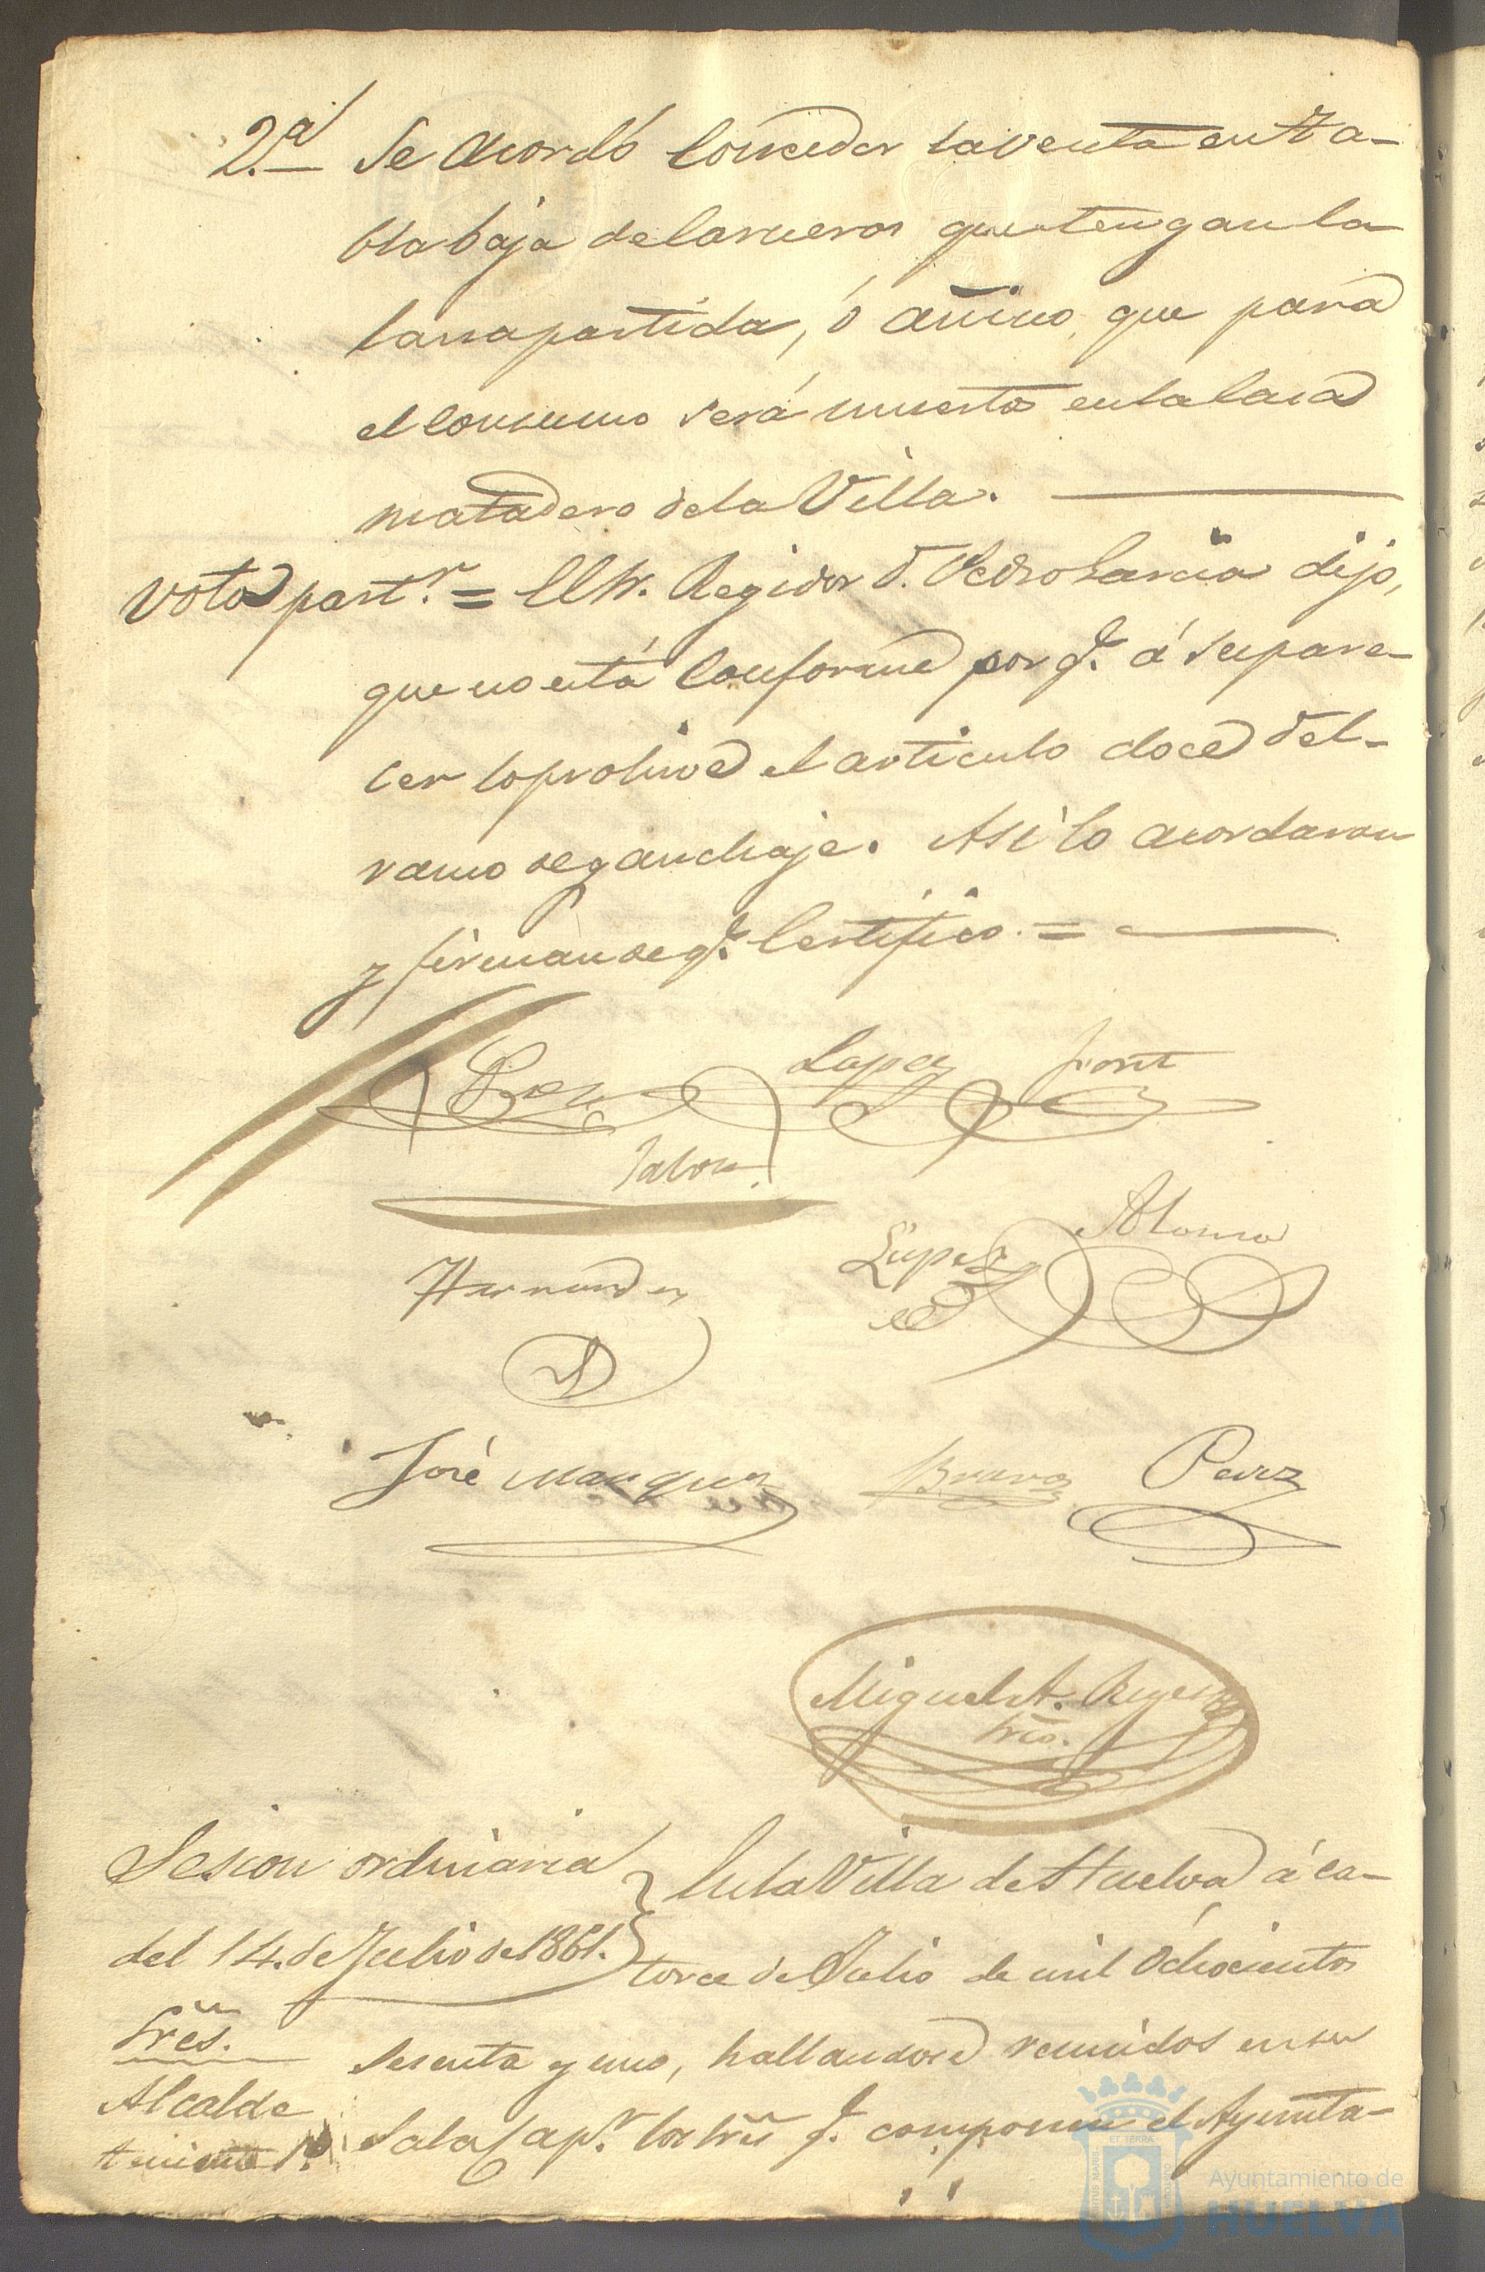 2.ª Se acordó Conceder la venta en Ta-
bla baja de Carneros que tengan la
lana partida, ó añino, que para
el Consumo será muerto en la Casa
matadero de la Villa.
Voto part.r = El Sr. Regidor D. Pedro Garcia dijo,
que no está Conforme por q.e á su pare-
cer lo prohive el articulo doce del
ramo de ganchaje. Asi lo acordaron
y firman de q.e Certifico. =
Lopez Font
Tabon.
Hernandez Lopez Alonso
José Marquez Bravo Perez
Miguel A. Reyes
Srio.
Sesion ordinaria
del 14. de Julio de 1861.
En la Villa de Huelva á ca-
torce de Julio de mil Ochocientos
Sesenta y uno, hallandose reunidos en su
Sala Cap.r los Sres q.e componen el Ayunta-
Sres.
Alcalde
teniente 1.º
Ayuntamiento de
HUELVA